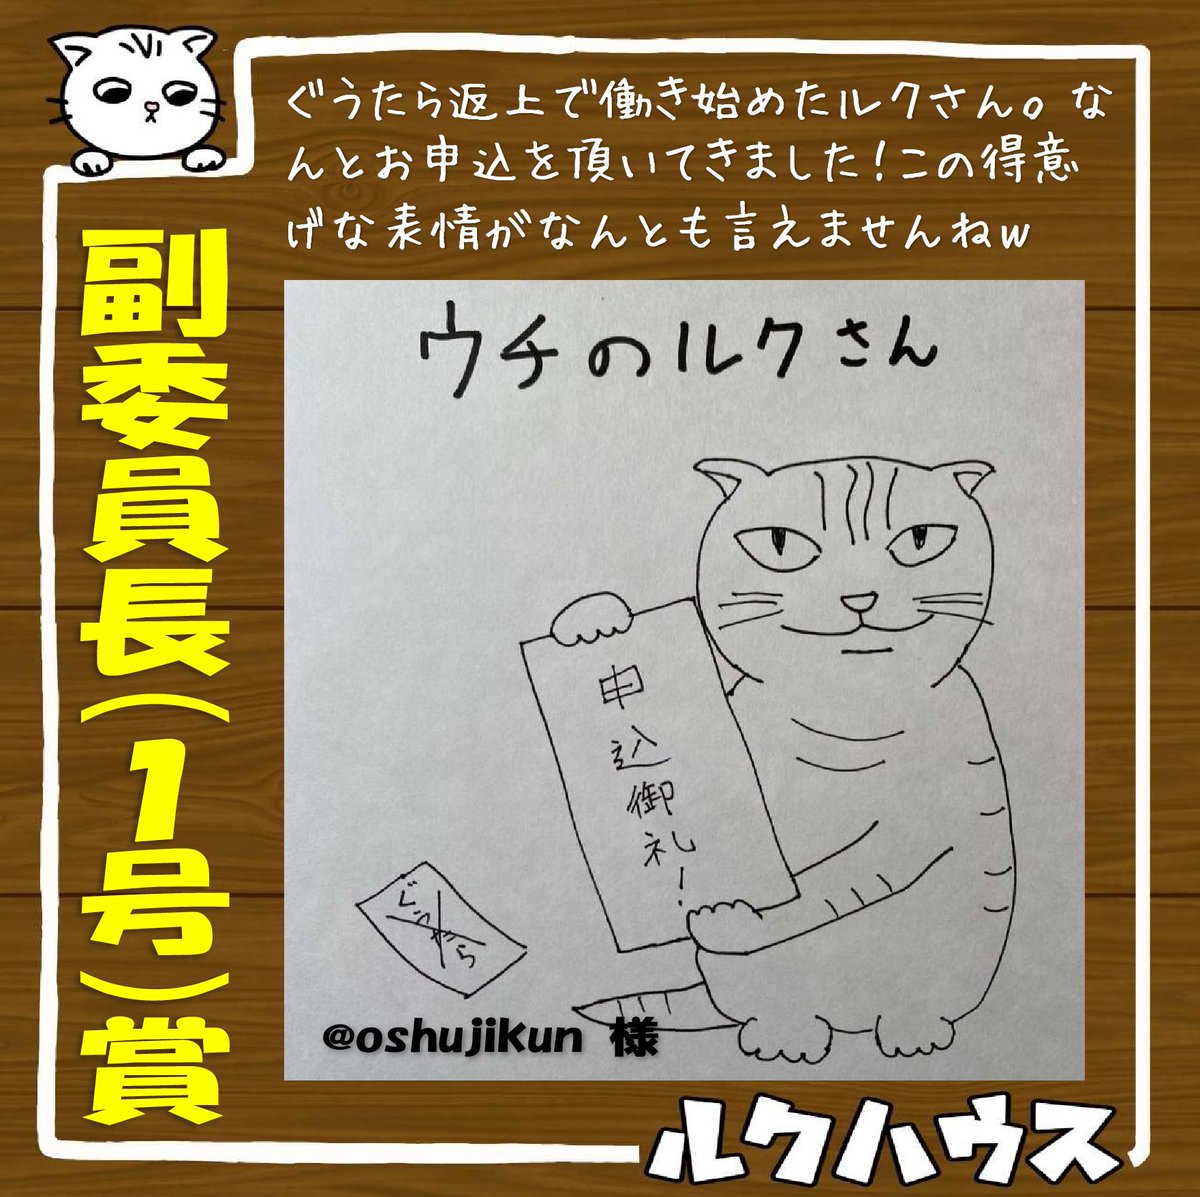 ぐうたら返上で働き始めたルクさん。な
んとお申込を頂いてきました!この得意
げな表情がなんとも言えませんねw
副委員長(1号)賞
ウチのルクさん
申込御礼!
ぐうたら
@oshujikun 様
ルクハウス